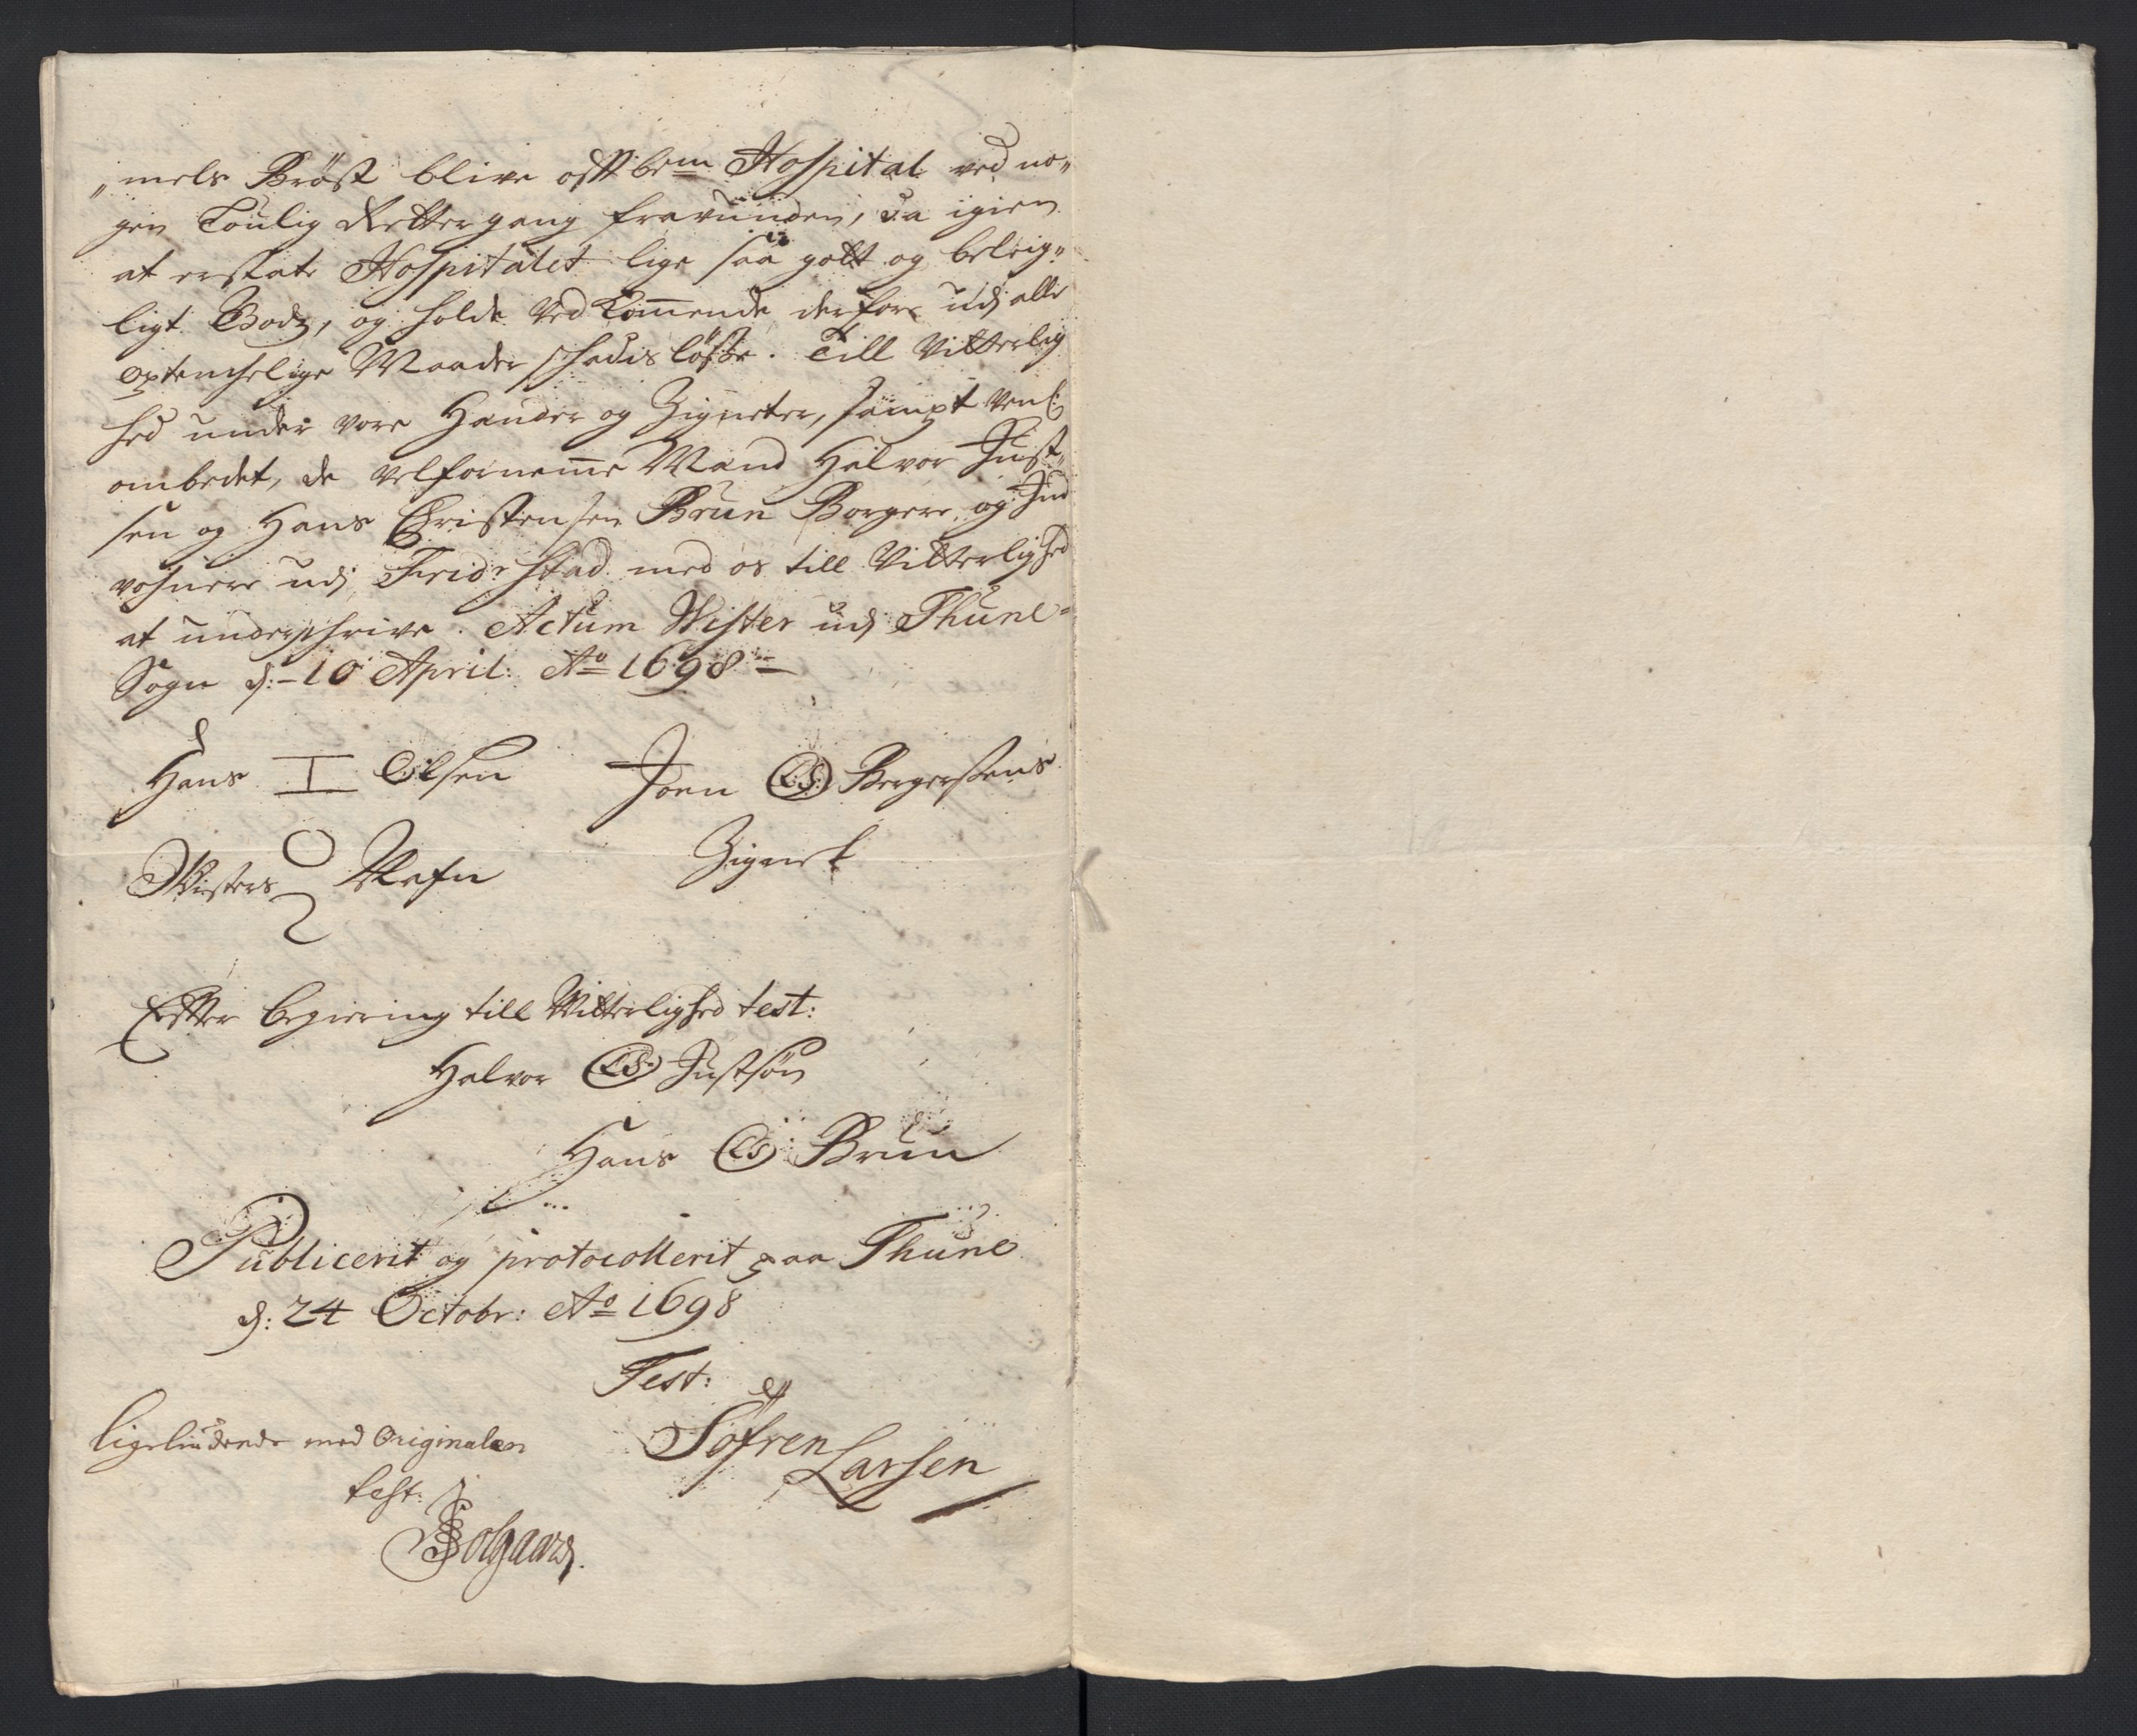 „mels Bröst blive offtbem Hospital ved no„
gen Loulig Rettergang fravunden, da igien
at erstate Hospitalet lige saa gott og beleig„
ligt Bodz, og holde Vedkommende derfore udj alle
optenchelige Maader schadisløsse. Till Vitterlig
hed under vore Hænder og Zigneter, sampt venl:
ombedet, de velfornemme Mænd Halvor Just„
sen og Hans Christensen Brun Borgere og Ind
vohnere udj Fridrstad med os till Vitterlighed
at underschrive. Actum Wister udj Thune-
Sogn d:-10 April: Ao 1698-
Hans I Olsen Joen LS: Bergersens
Wisters Nafn Zignet
Effter begiering till Witterlighed test:
Halvor LS: Justsøn
Hans LS: Brun
Publicerit og protocollerit paa Thune
d: 24 Octobr: Ao 1698
Test:
Söfren
Larsen
Ligeliudende med Originalen
test: